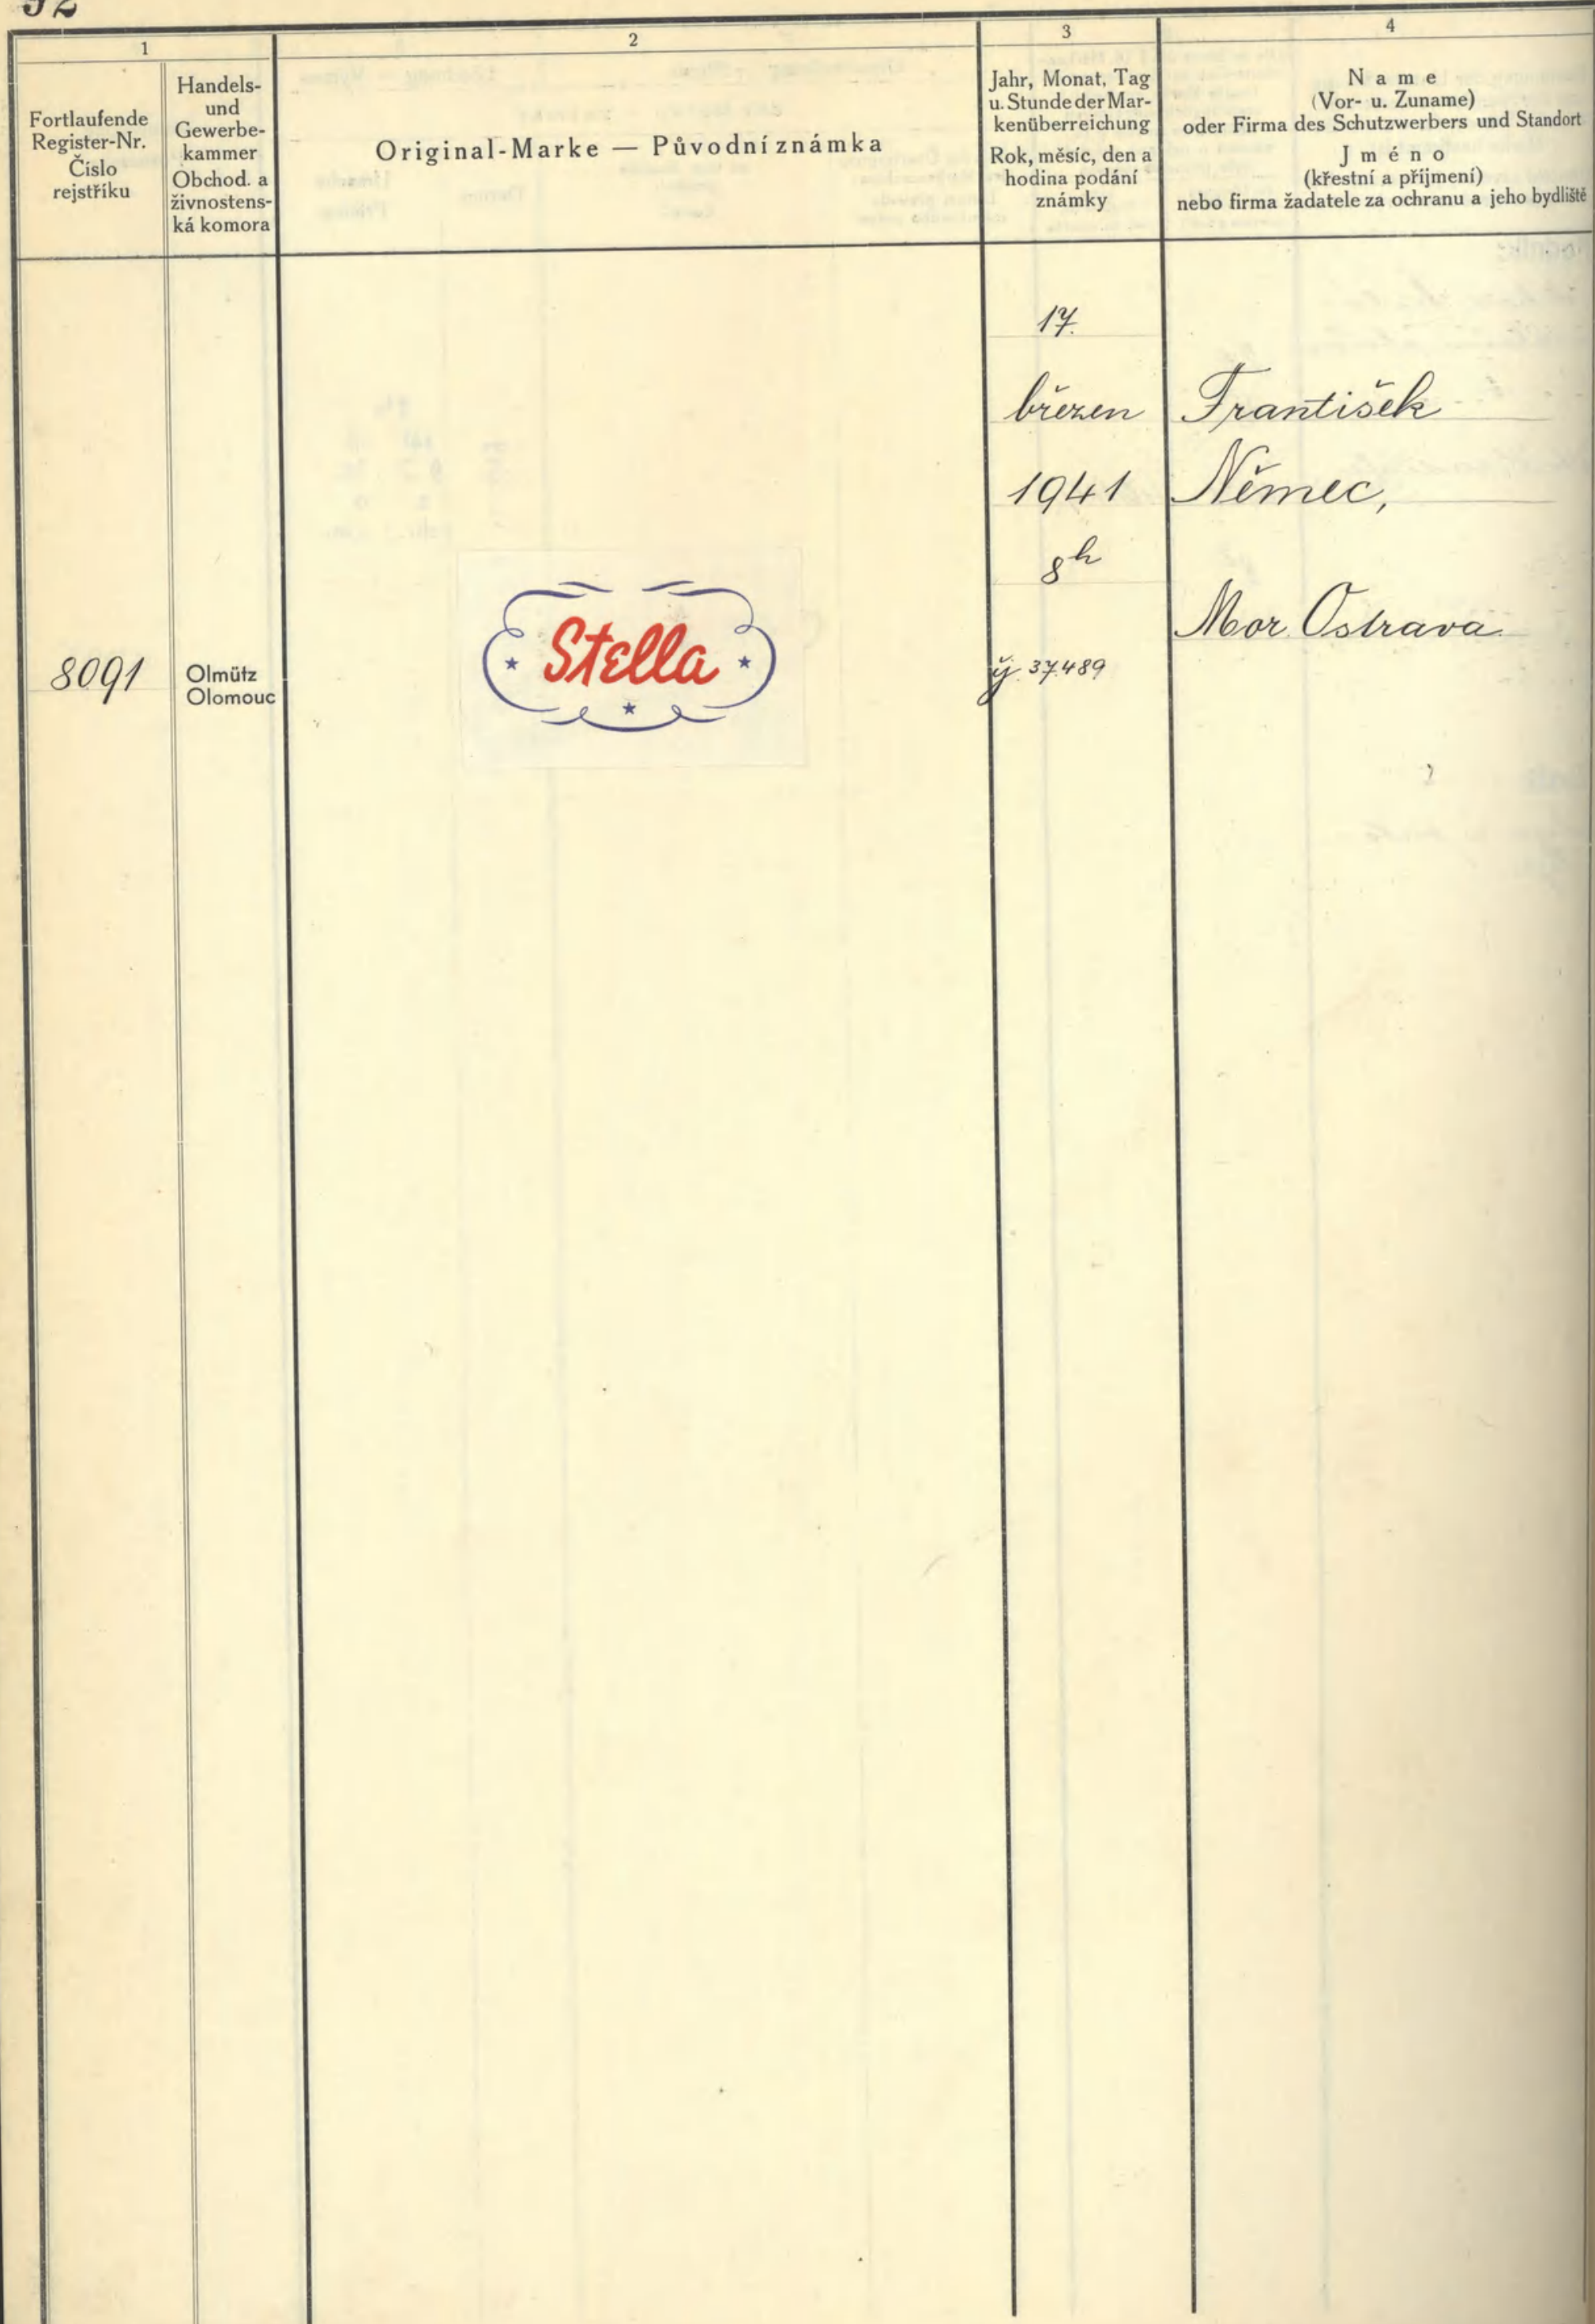 1
Fortlaufende
Register-Nr.
Číslo
rejstříku
Handels-
und
Gewerbe-
kammer
Obchod. a
živnostens-
ká komora
2
Original-Marke — Původní známka
3
Jahr, Monat, Tag
u. Stunde der Mar-
kenüberreichung
Rok, měsíc, den a
hodina podání
známky
4
Name
(Vor- u. Zuname)
oder Firma des Schutzwerbers und Standort
Jméno
(křestní a příjmení)
nebo firma žadatele za ochranu a jeho bydliště
8091
Olmütz
Olomouc
Stella
17.
březen
1941
8h
37489
František
Němec,
Mor. Ostrava